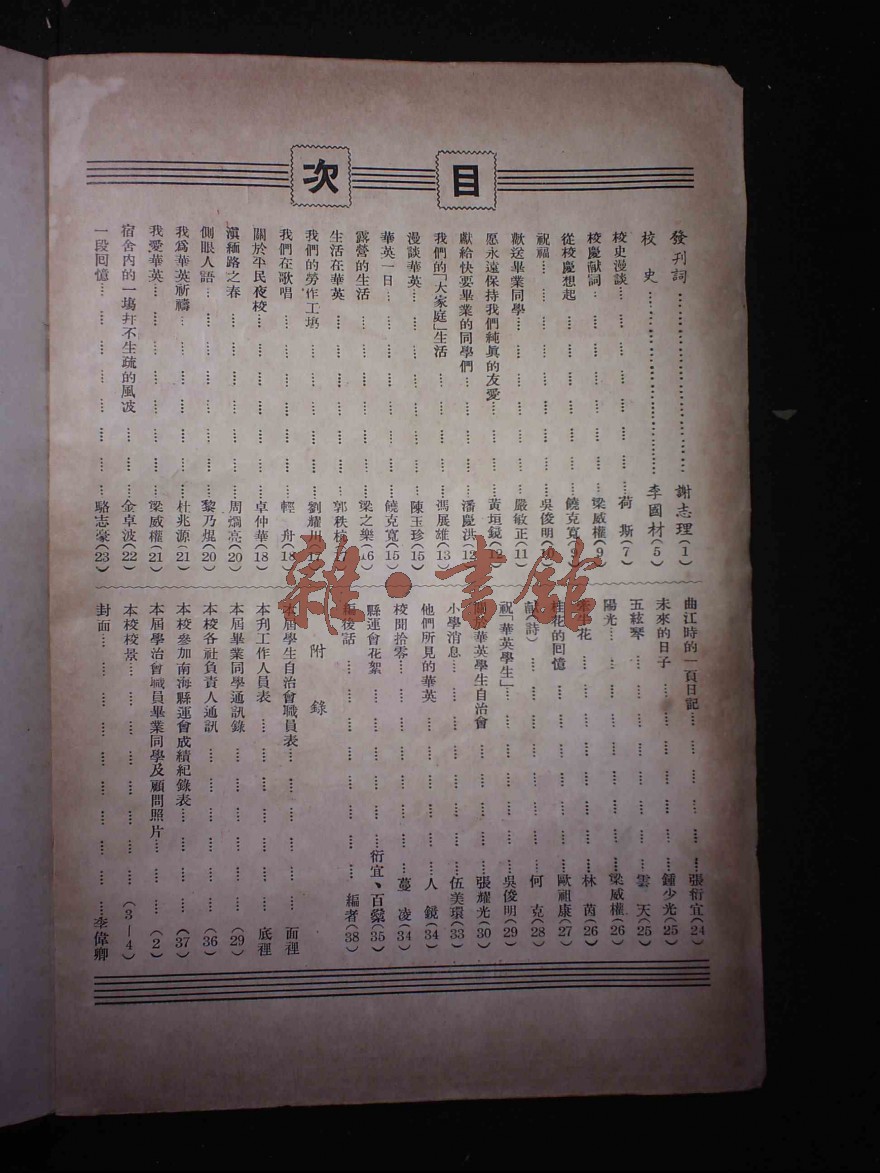 目次
發刊詞……謝志理(1)
校史……李國材(5)
校史漫談……荷斯(7)
校慶献詞……梁威權(9)
從校慶想起……饒克寬(9)
祝福……吳俊明(10)
歡送畢業同學……嚴敏正(11)
愿永遠保持我們純眞的友愛……黃垣鏡(12)
獻給快要畢業的同學們……潘慶洪(12)
我們的「大家庭」生活……馮展雄(13)
漫談華英……陳玉珍(15)
華英一日……饒克寬(15)
露營的生活……梁之樂(16)
生活在華英……郭秩杭(17)
我們的勞作工塲……劉耀川(17)
我們在歌唱……輕舟(18)
關於平民夜校……卓仲華(18)
滇緬路之春……周爛亮(20)
側眼人語……黎乃焜(20)
我爲華英祈禱……杜兆源(21)
我愛華英……梁威權(21)
宿舍內的一塲幷不生疏的風波……金卓波(22)
一段回憶……駱志豪(23)
曲江時的一頁日記……張衍宜(24)
未來的日子……鍾少光(25)
五絃琴……雲天(25)
陽光……梁威權(26)
牽牛花……林茵(26)
桂花的回憶……歐祖康(27)
献(詩)……何克(28)
祝「華英學生」……吳俊明(29)
關於華英學生自治會……張耀光(30)
小學消息……伍美環(33)
他們所見的華英……人鏡(34)
校聞拾零……蔓凌(34)
縣運會花絮……衍宜、百粲(35)
編後話……編者(38)
附錄
本屆學生自治會職員表……面裡
本刊工作人員表……底裡
本屆畢業同學通訊錄……(29)
本校各社負責人通訊……(36)
本校參加南海縣運會成績紀錄表……(37)
本屆學治會職員畢業同學及顧問照片……(2)
本校校景……(3—4)
封面……李偉卿
雜·書館